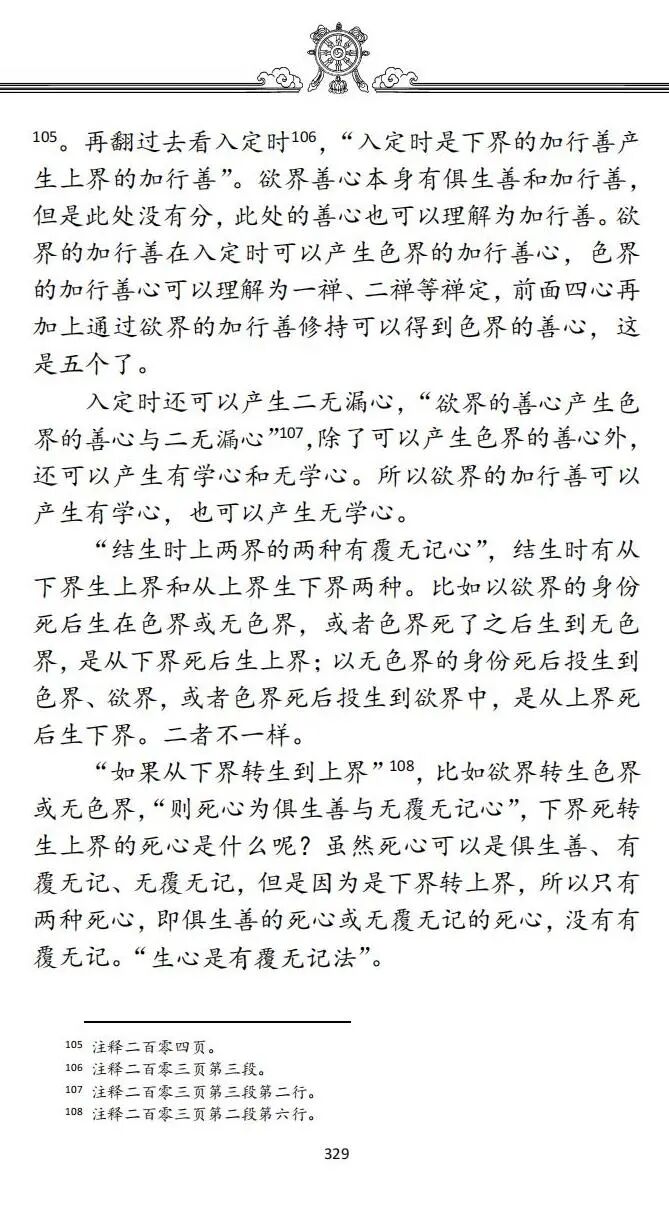 105。再翻过去看入定时106，“入定时是下界的加行善产
生上界的加行善”。欲界善心本身有俱生善和加行善，
但是此处没有分，此处的善心也可以理解为加行善。欲
界的加行善在入定时可以产生色界的加行善心，色界
的加行善心可以理解为一禅、二禅等禅定，前面四心再
加上通过欲界的加行善修持可以得到色界的善心，这
是五个了。
入定时还可以产生二无漏心，“欲界的善心产生色
界的善心与二无漏心”107，除了可以产生色界的善心外，
还可以产生有学心和无学心。所以欲界的加行善可以
产生有学心，也可以产生无学心。
“结生时上两界的两种有覆无记心”，结生时有从
下界生上界和从上界生下界两种。比如以欲界的身份
死后生在色界或无色界，或者色界死了之后生到无色
界，是从下界死后生上界；以无色界的身份死后投生到
色界、欲界，或者色界死后投生到欲界中，是从上界死
后生下界。二者不一样。
“如果从下界转生到上界”108，比如欲界转生色界
或无色界，“则死心为俱生善与无覆无记心”，下界死转
生上界的死心是什么呢？虽然死心可以是俱生善、有
覆无记、无覆无记，但是因为是下界转上界，所以只有
两种死心，即俱生善的死心或无覆无记的死心，没有有
覆无记。“生心是有覆无记法”。
105 注释二百零四页。
106 注释二百零三页第三段。
107 注释二百零三页第三段第二行。
108 注释二百零三页第二段第六行。
329